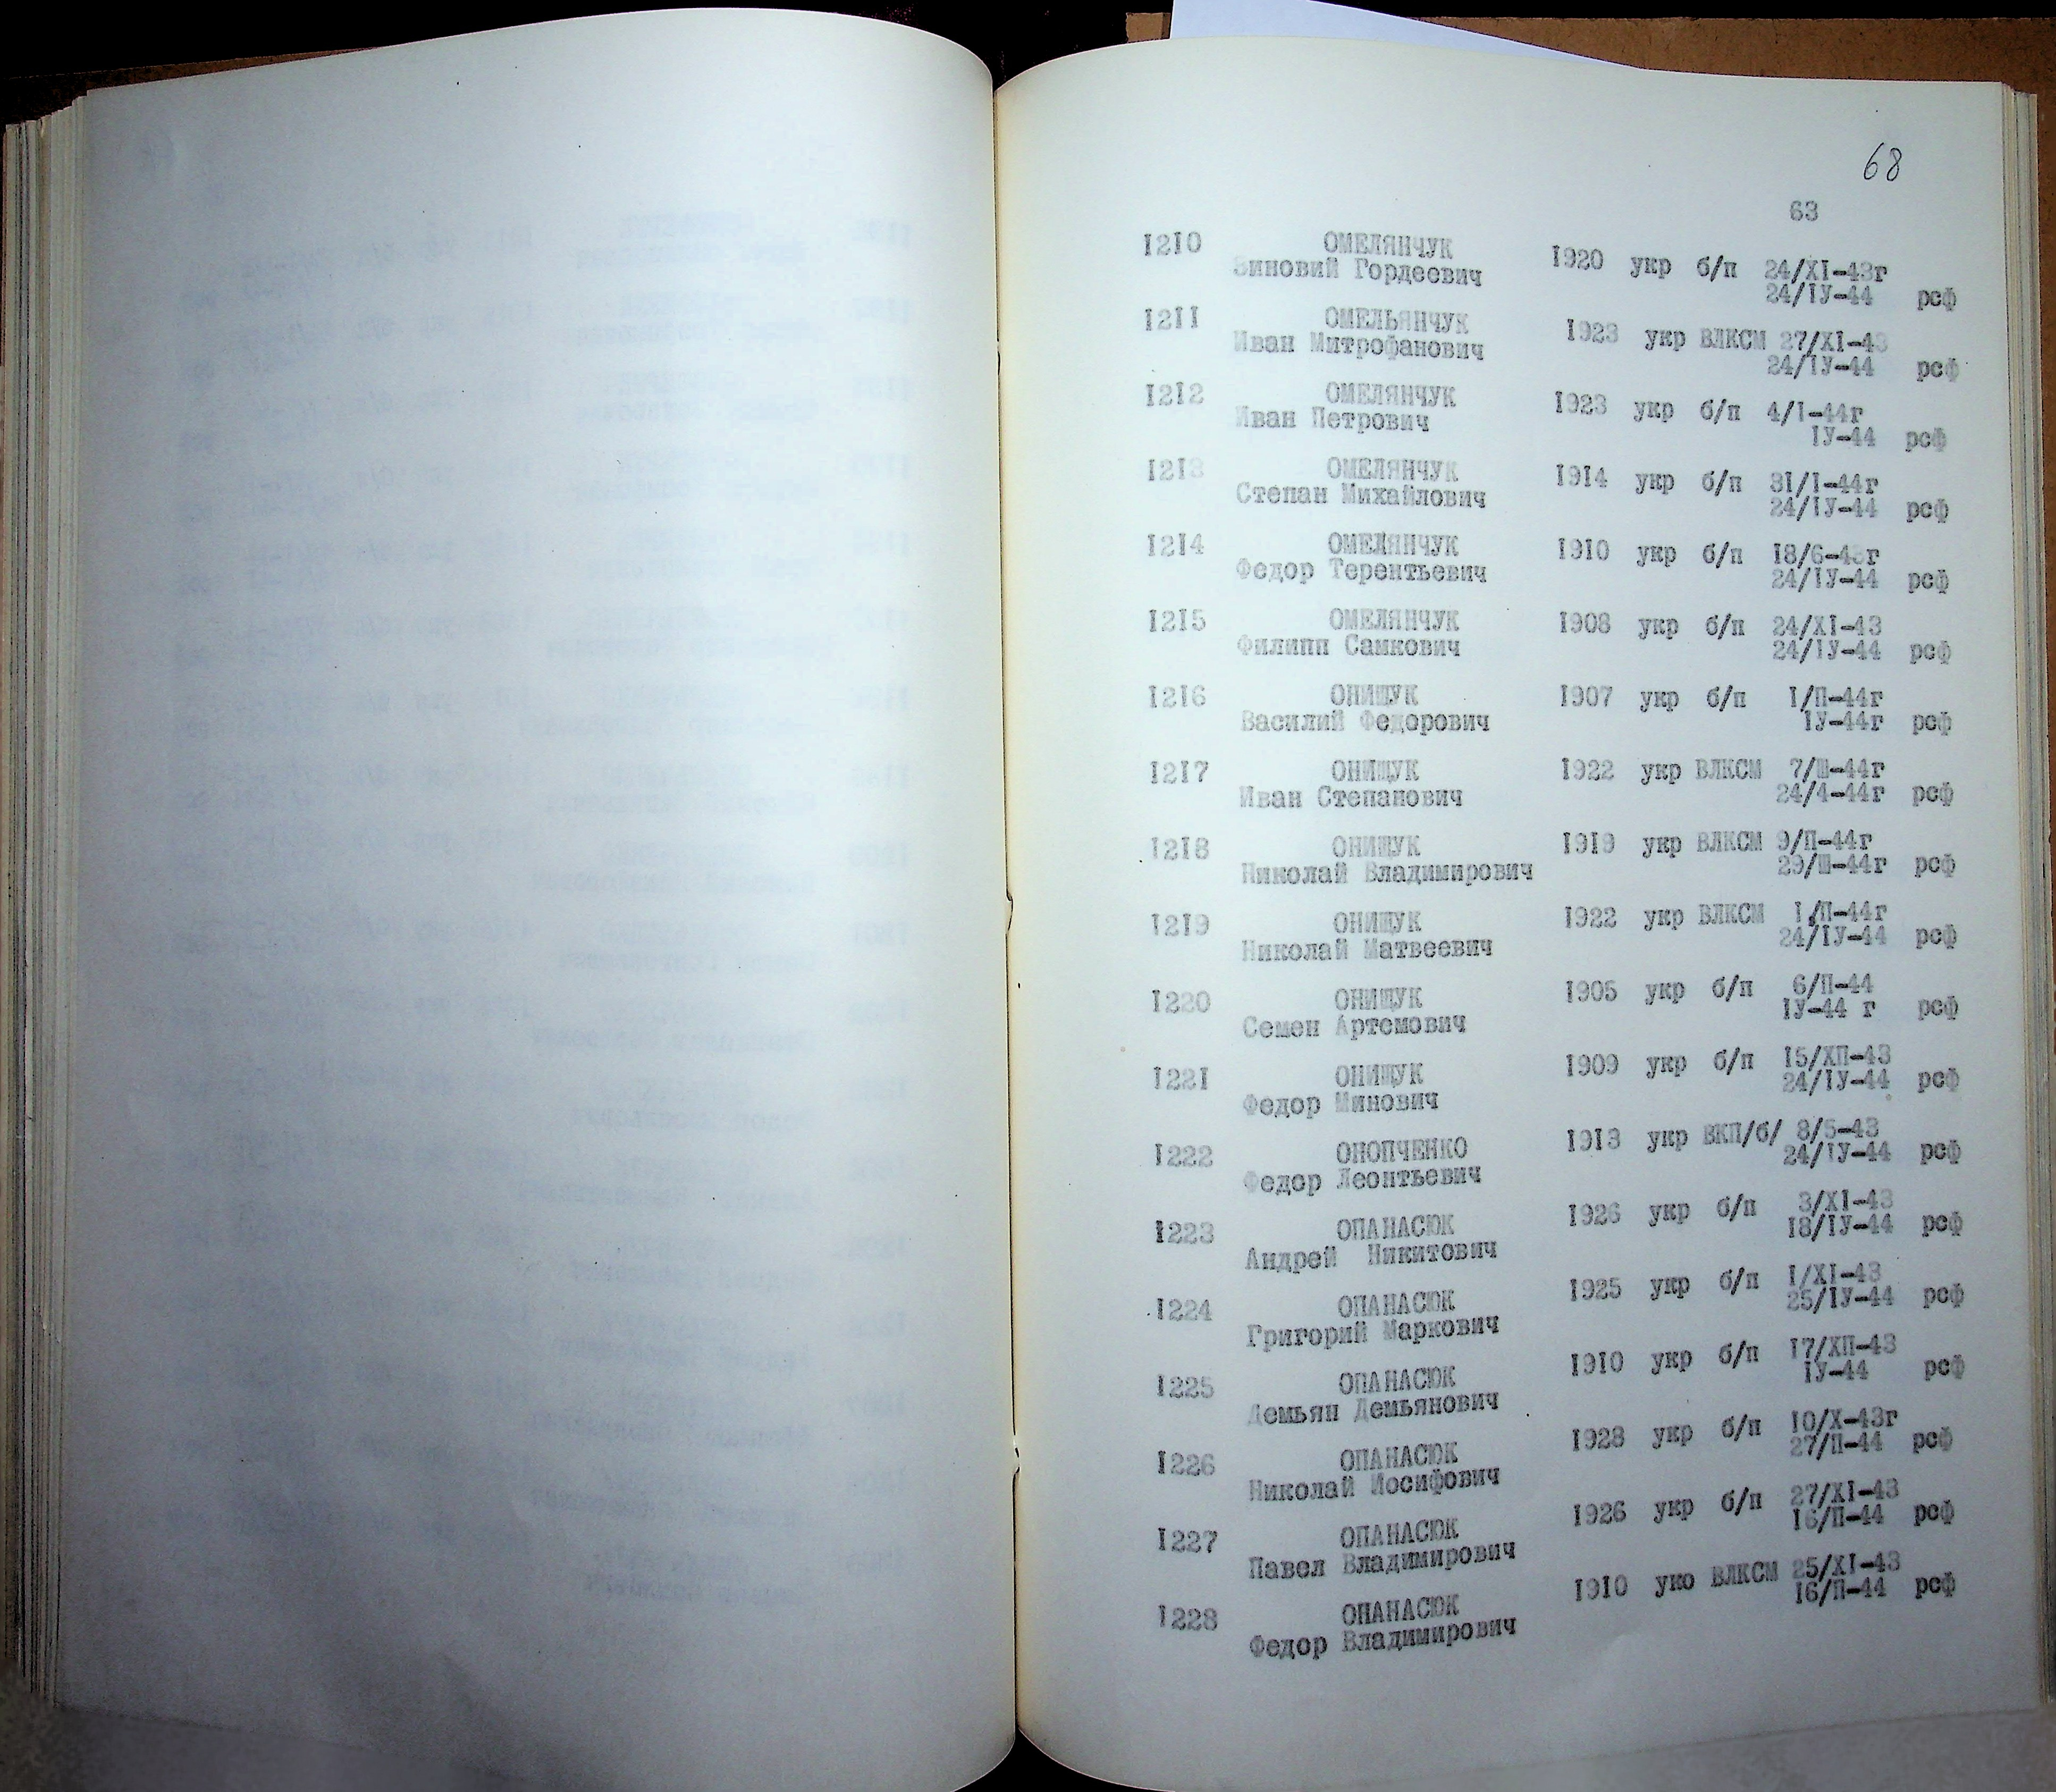 68
63
1210 ОМЕЛЯНЧУК
Зиновий Гордеевич 1920 укр б/п 24/XI-43г
24/IУ-44 рсф
1211 ОМЕЛЬЯНЧУК
Иван Митрофанович 1923 укр ВЛКСМ 27/XI-43
24/IУ-44 рсф
1212 ОМЕЛЯНЧУК
Иван Петрович 1923 укр б/п 4/I-44г
IУ-44 рсф
1213 ОМЕЛЯНЧУК
Степан Михайлович 1914 укр б/п 31/I-44г
24/IУ-44 рсф
1214 ОМЕЛЯНЧУК
Федор Терентьевич 1910 укр б/п 18/6-43г
24/IУ-44 рсф
1215 ОМЕЛЯНЧУК
Филипп Самкович 1908 укр б/п 24/XI-43
24/IУ-44 рсф
1216 ОНИЩУК
Василий Федорович 1907 укр б/п I/П-44г
IУ-44г рсф
1217 ОНИЩУК
Иван Степанович 1922 укр ВЛКСМ 7/Ш-44г
24/4-44г рсф
1218 ОНИЩУК
Николай Владимирович 1919 укр ВЛКСМ 9/П-44г
29/Ш-44г рсф
1219 ОНИЩУК
Николай Матвеевич 1922 укр ВЛКСМ I/П-44г
24/IУ-44 рсф
1220 ОНИЩУК
Семен Артемович 1905 укр б/п 6/П-44
IУ-44 г рсф
1221 ОНИЩУК
Федор Минович 1909 укр б/п 15/ХП-43
24/IУ-44 рсф
1222 ОНОПЧЕНКО
Федор Леонтьевич 1913 укр ВКП/б/ 8/5-43
24/IУ-44 рсф
1223 ОПАНАСЮК
Андрей Никитович 1926 укр б/п 3/XI-43
18/IУ-44 рсф
1224 ОПАНАСЮК
Григорий Маркович 1925 укр б/п I/XI-43
25/IУ-44 рсф
1225 ОПАНАСЮК
Демьян Демьянович 1910 укр б/п 17/ХП-43
IУ-44 рсф
1226 ОПАНАСЮК
Николай Иосифович 1928 укр б/п 10/Х-43г
27/П-44 рсф
1227 ОПАНАСЮК
Павел Владимирович 1926 укр б/п 27/XI-43
16/П-44 рсф
1228 ОПАНАСЮК
Федор Владимирович 1910 уко ВЛКСМ 25/XI-43
16/П-44 рсф